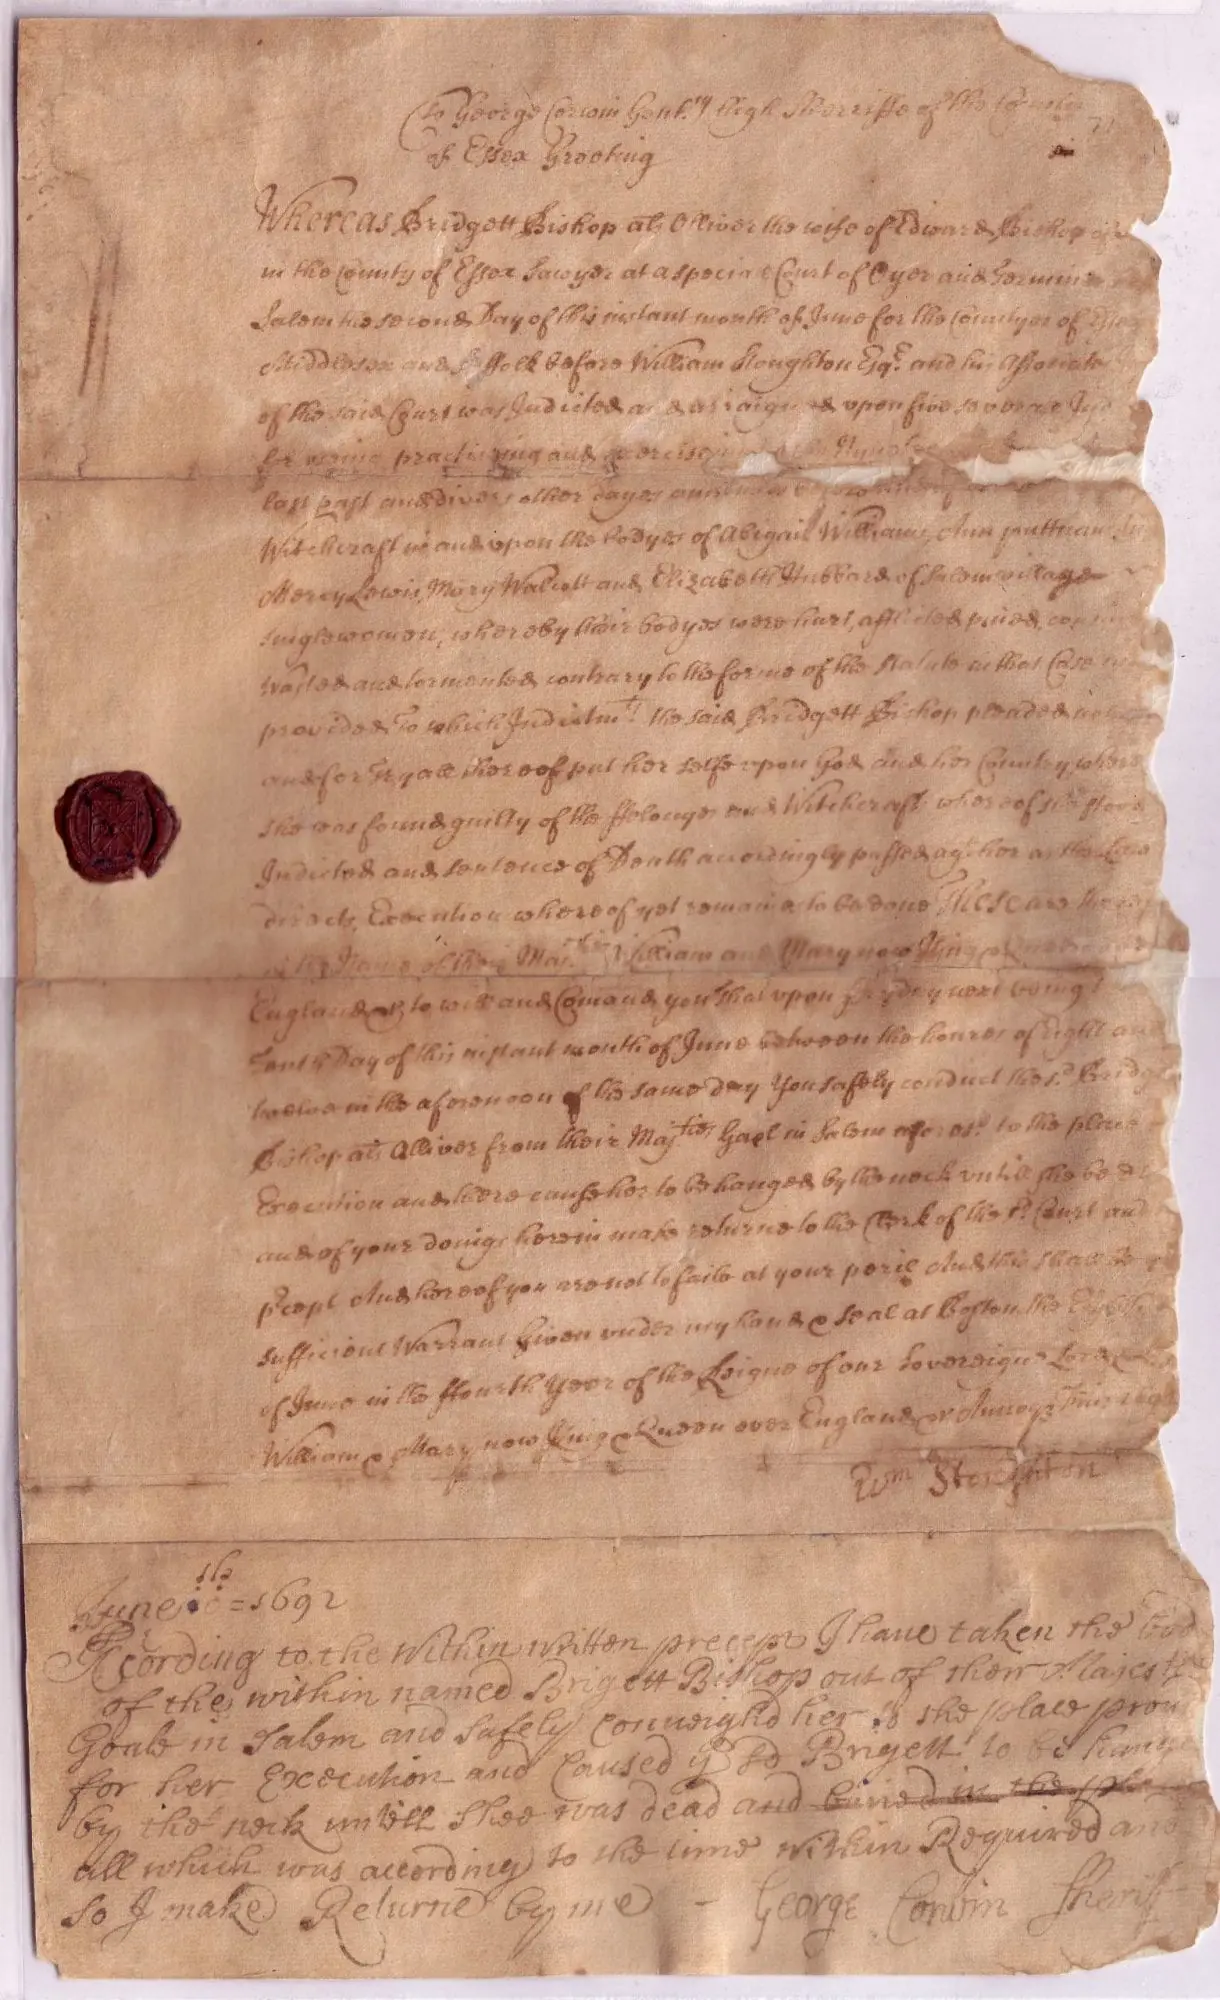 To George Corwin Gentm high Sherriffe of the County
of Essex Greeting
Whereas Bridgett Bishop als Olliver the wife of Edward Bishop of
in the County of Essex Sawyer at a speciall Court of Oyer and Termin
Salem the second Day of this instant month of June for the Countyes of Essex
Middlesex and Suffolk before William Stoughton Esqr. and his Associate
of the said Court was Indicted and arraigned upon five severall Ind
for useing practising and exercising
last past and divers other dayes
Witchcraft in and upon the bodyes of Abigail Williams, Ann puttnam
Mercy Lewis, Mary Walcott and Elizabeth Hubbard of Salem village
singlewomen, whereby their bodyes were hurt, afflicted pined, consum
Wasted and tormented contrary to the forme of the statute in that Case
provided To which Indictmts the said Bridgett Bishop pleaded not
and for Tryall thereof put her selfe upon God and her Country, where
she was found guilty of the ffelonyes and Witchcrafts whereof she stood
Indicted and sentence of Death accordingly passed agt her as the Law
directs, Execution whereof yet remaines to be done These are therefore
in the Name of their Majties William and Mary now King & Queen over
England &c to will and Comand you That upon fryday next being
Tenth Day of this instant month of June between the houres of Eight and
twelve in the aforenoon of the same day You safely conduct the sd Bridg
Bishop als Olliver from their Majties Gaol in Salem aforesd to the place
Execution and there cause her to be hanged by the neck untill she be de
and of your doings herein make returne to the Clerk of the sd Court and
pcept And hereof you are not to faile at your peril And this shall be
sufficient Warrant Given under my hand & seal at Boston the Eighth
of June in the ffourth Year of the Reigne of our Sovereigne Lord &
William & Mary now King & Queen over England &c Annoqe Dni 169
Wm Stoughton
June 10th = 1692
According to the Within Written precept I have taken the bod
of the within named Brigett Bishop out of their Majesties
Goale in Salem and Safely Conveighd her to the place prou
for her Execution and Caused ye sd Brigett to be hang
by the neck untill Shee was dead and buried in the pla
all which was according to the time Within Required and
So I make Returne by me - George Corwin Sheriff